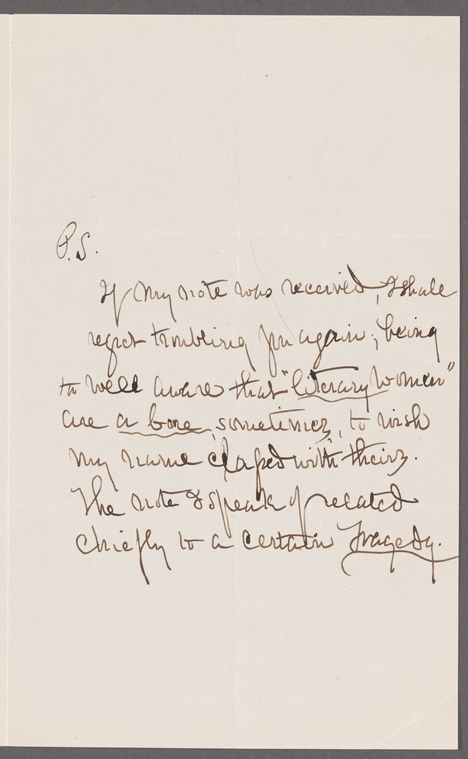 P.S.
If my note was received, I shall
regret troubling you again; being
to well aware that "literary women"
are a bore, sometimes, to wish
my name classed with theirs.
The note I speak of related
chiefly to a certain Tragedy.